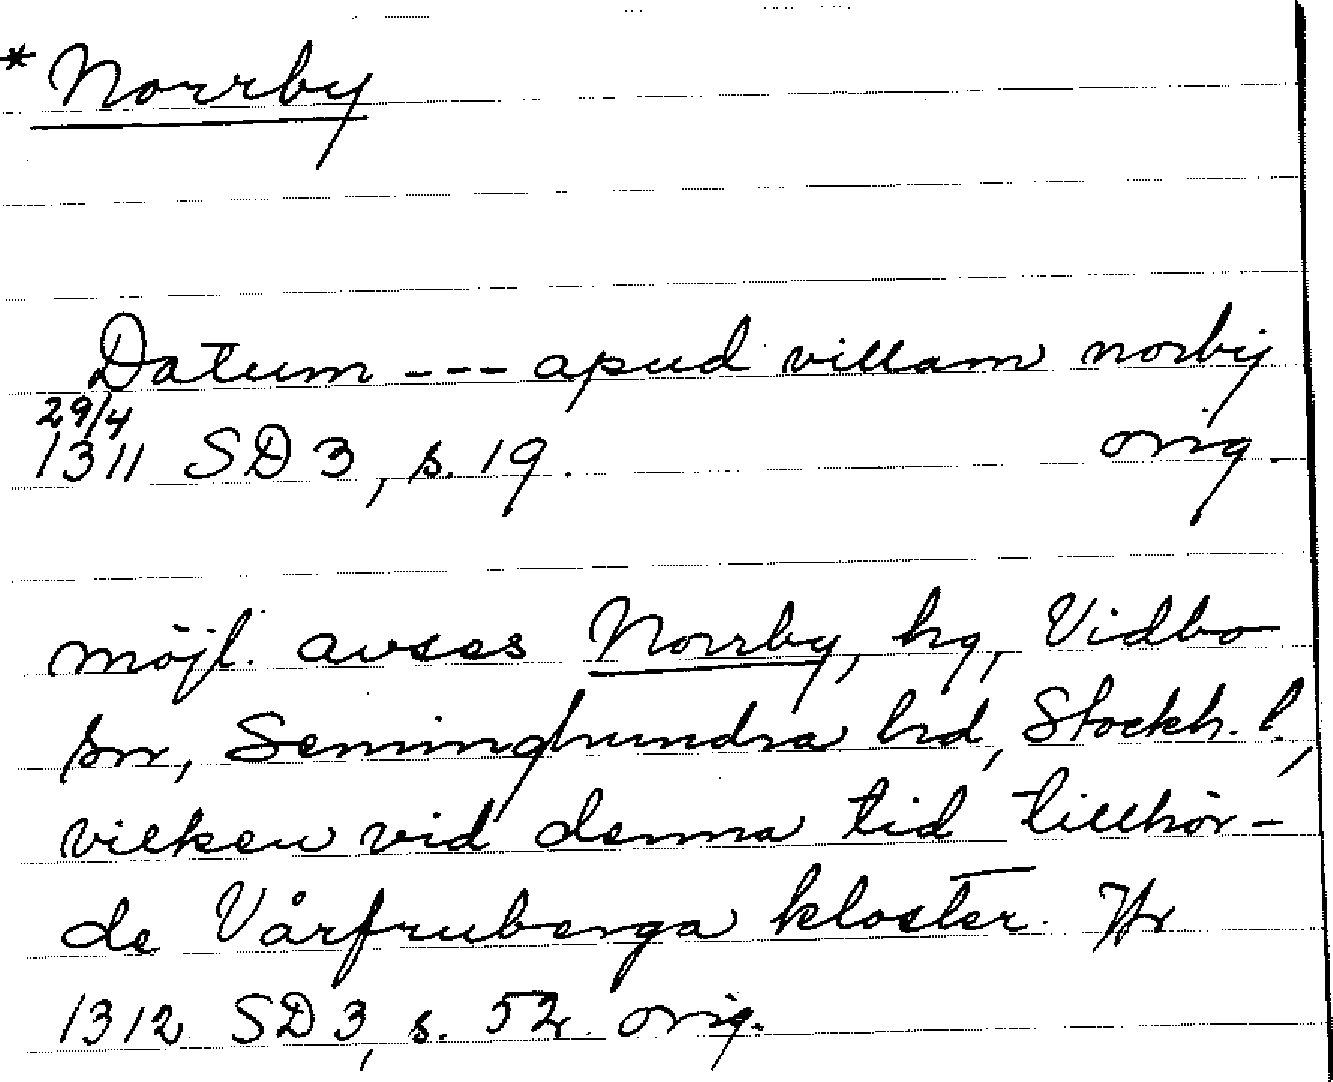 * Norrby
Datum --- apud villam norby
29/4
1311 SD 3, s. 19. orig.
möjl. avses Norrby, hg, Vidbo
sn, Seminghundra hd, Stockh. l.,
vilken vid denna tid tillhör-
de Vårfruberga kloster. Jfr
1312 SD 3, s. 52 orig.